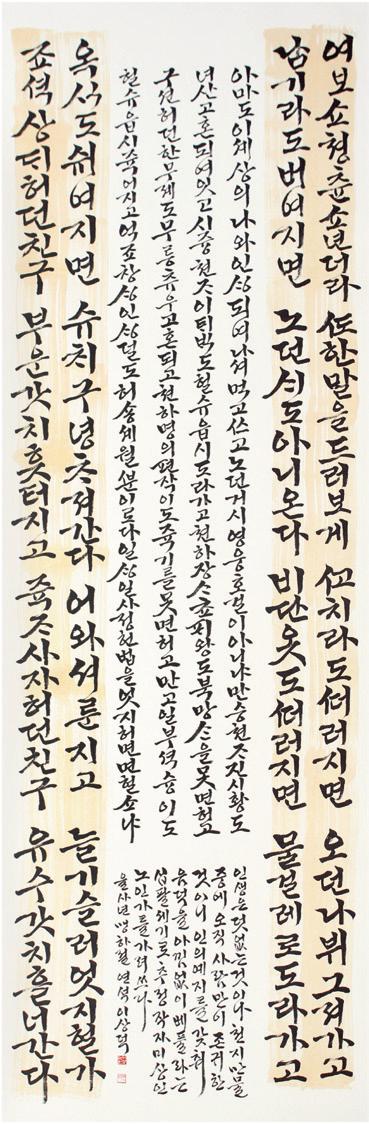 여보쇼 청츈소년더라 ᄯᅩ한말을드러보게 ᄭᅩ치라도ᄯᅥ러지면 오던나뷔그져가고
남기라도버여지면 노던ᄉᆡ도아니온다 비단옷도ᄯᅥ러지면 물걸레로도라가고
아마도이세상의나와인ᄉᆡᆼ되여나셔먹고쓰고노던거시영웅호걸이아니냐만승쳔ᄌᆞ진시황도
녀산고혼되여잇고시즁쳔ᄌᆞ이ᄐᆡᄇᆡᆨ도헐슈읍시도라가고쳔하장ᄉᆞ쵸피왕도북망ᄉᆞᆫ을못면허고
구션허던한무제도무릉츄우고혼되고쳔하명의편작이도쥭기를못면허고만고일부셕슝이도
헐슈읍시쥭어지고억죠창ᄉᆡᆼ인ᄉᆡᆼ덜도허송세월ᄲᅮᆫ이로다일ᄉᆡᆼ일사졍헌법을엇지허면면헐소냐
인생은덧없는것이나천지만물
중에오직사람만이존귀한
것이니인의예지를갖춰
음덕을아낌없이베풀라는
십팔세기로추정작자미상인
노인가를가려쓰다
을사년맹하절연석이상덕
옥셕도쉬여지면 슈치구녕츠져간다 어와셔룬지고 늘기슬러엇지헐가
죠셕상ᄃᆡ허던친구 부운갓치흣터지고 쥭ᄌᆞ사자허던친구 유수갓치흘너간다